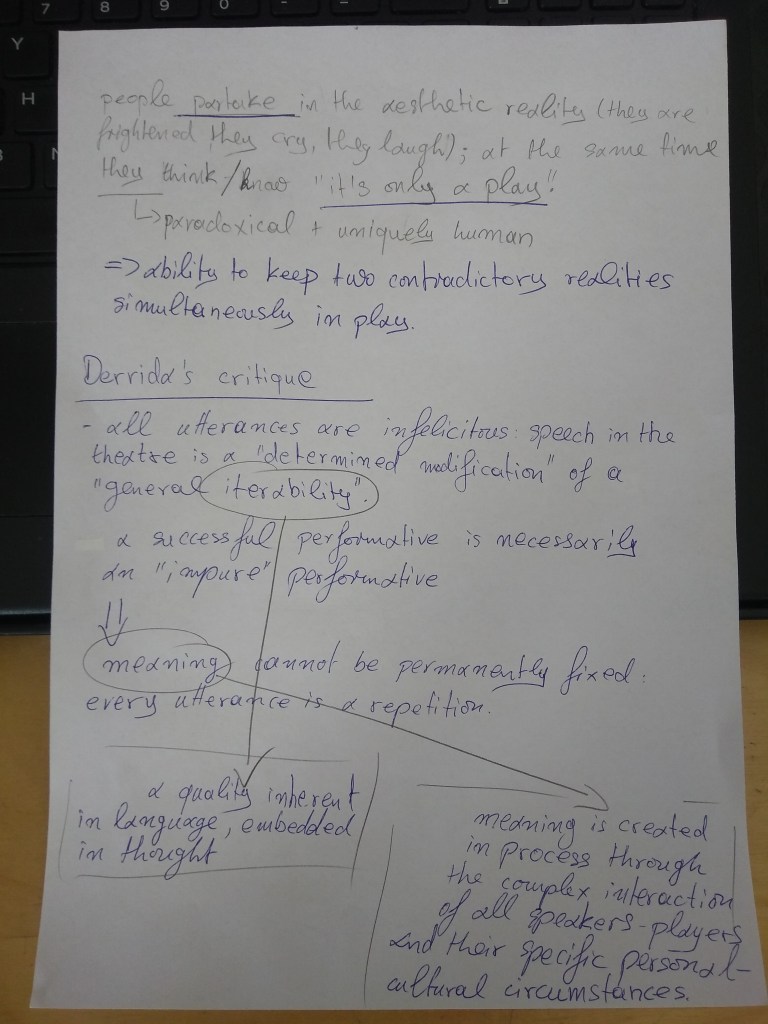 7 8 9 0 - =
Y
H
N
people partake in the aesthetic reality (they are
frightened, they cry, they laugh); at the same time
they think/know "it's only a play".
↳ paradoxical + uniquely human
=> ability to keep two contradictory realities
simultaneously in play.
Derrida's critique
- all utterances are infelicitous: speech in the
theatre is a "determined modification" of a
"general iterability".
a successful performative is necessarily
an "impure" performative
⇓
meaning cannot be permanently fixed:
every utterance is a repetition.
a quality inherent
in language, embedded
in thought
meaning is created
in process through
the complex interaction
of all speakers-players
and their specific personal-
cultural circumstances.